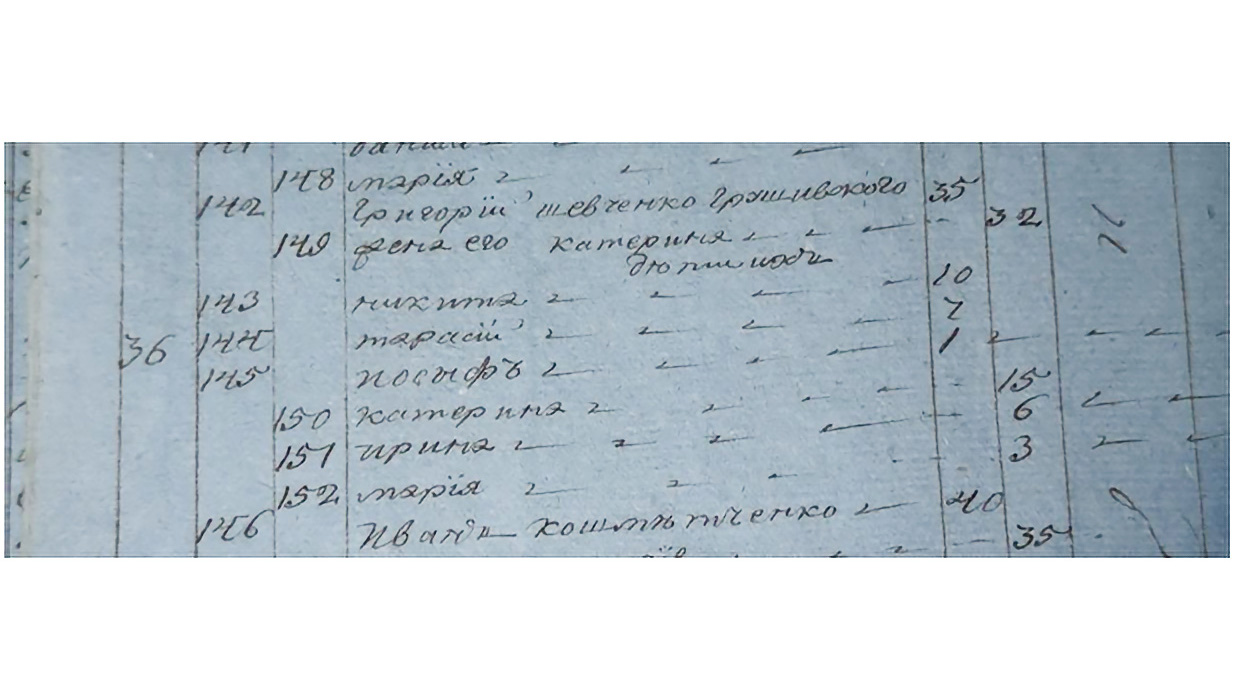 148 марія
142 Григорій шевченко Грушивского 35
149 жена его катерина 32
дѣти ихъ
143 никита 10
36 144 тарасій 7
145 иосыфъ 1
150 катерина 15
151 ирина 6
152 марія 3
146 Иванъ 40
35